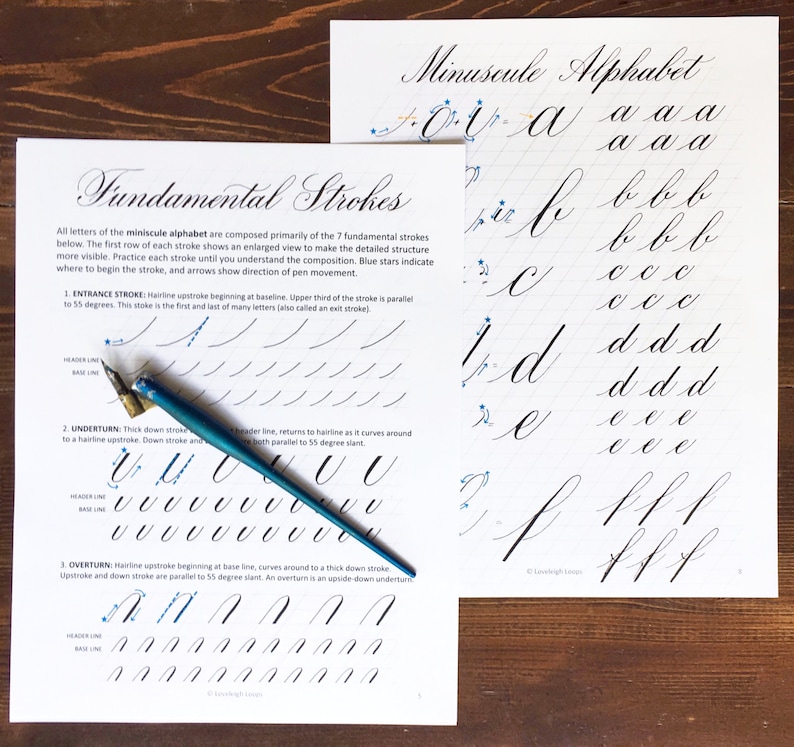 Fundamental Strokes
All letters of the miniscule alphabet are composed primarily of the 7 fundamental strokes
below. The first row of each stroke shows an enlarged view to make the detailed structure
more visible. Practice each stroke until you understand the composition. Blue stars indicate
where to begin the stroke, and arrows show direction of pen movement.
1. ENTRANCE STROKE: Hairline upstroke beginning at baseline. Upper third of the stroke is parallel
to 55 degrees. This stoke is the first and last of many letters (also called an exit stroke).
HEADER LINE
BASE LINE
2. UNDERTURN: Thick down stroke header line, returns to hairline as it curves around
to a hairline upstroke. Down stroke and both parallel to 55 degree slant.
HEADER LINE
BASE LINE
3. OVERTURN: Hairline upstroke beginning at base line, curves around to a thick down stroke.
Upstroke and down stroke are parallel to 55 degree slant. An overturn is an upside-down underturn.
HEADER LINE
BASE LINE
© Loveleigh Loops
5
Minuscule Alphabet
+ + = a a a a
a a a
= b b b b
b b b
c c c c
c c c
= d d d d
d d d
e e e e
e e e
= f f f f
f f f
© Loveleigh Loops
8